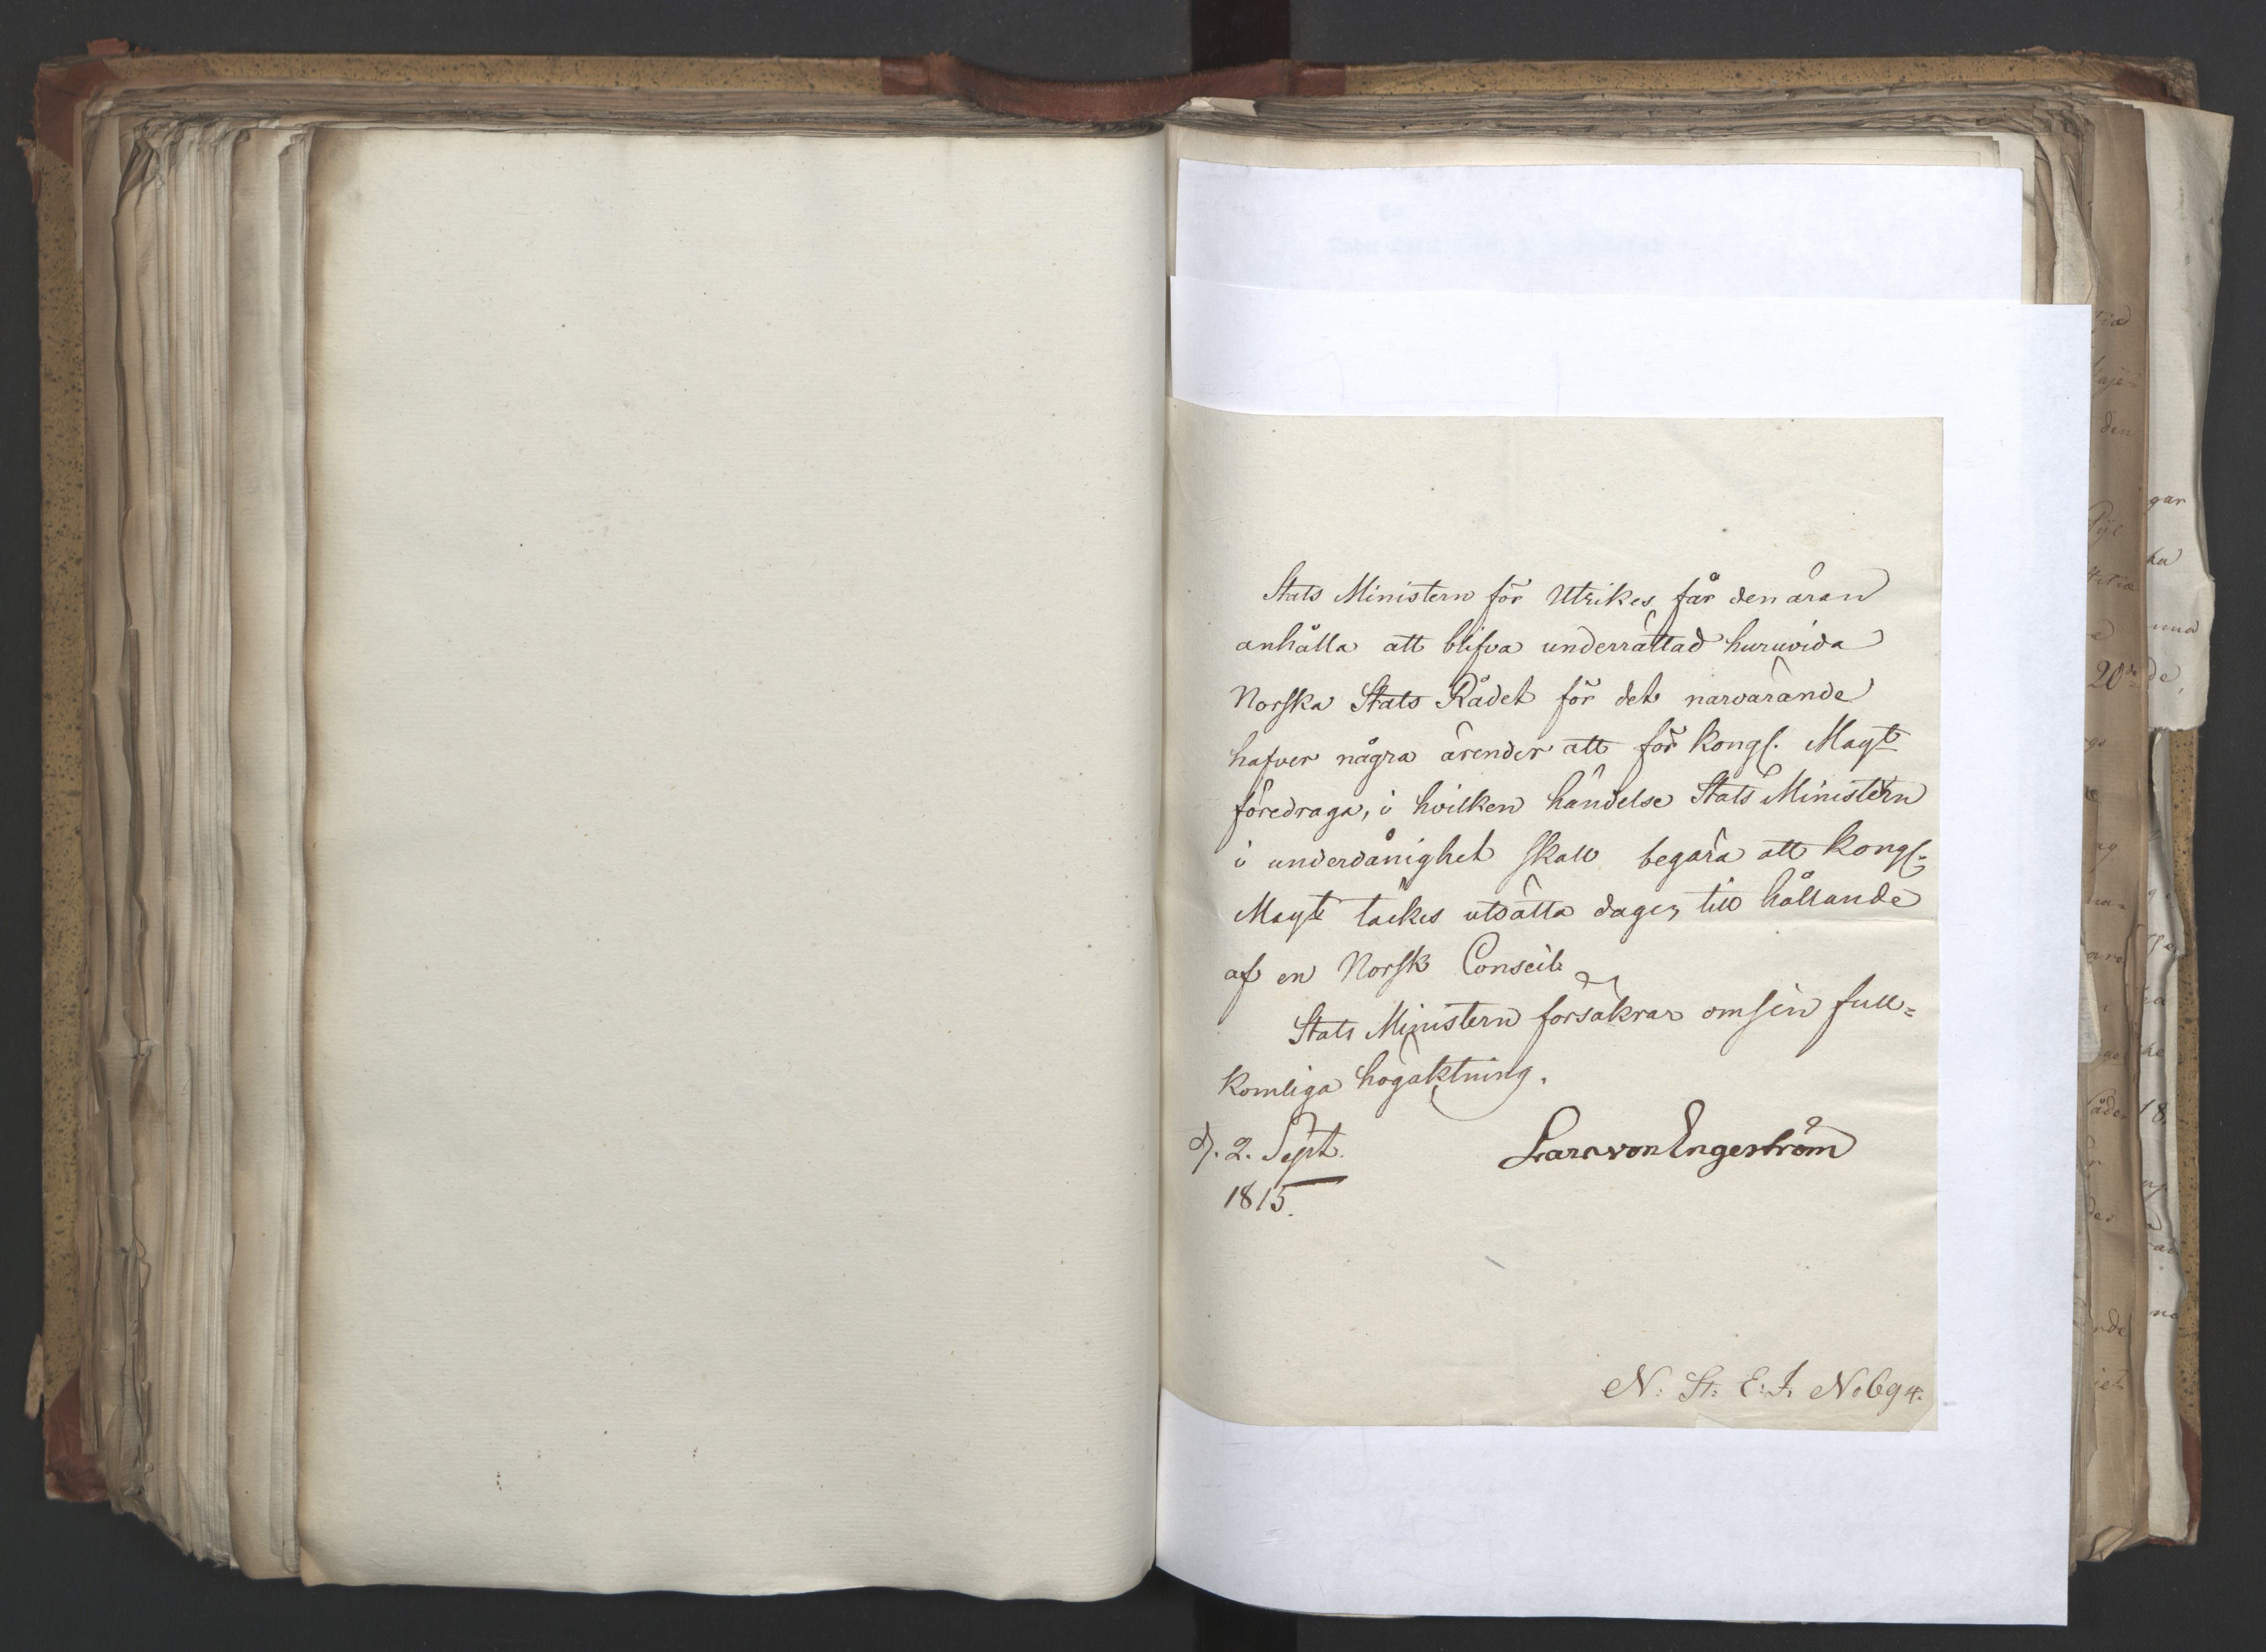 Stats Ministern för Utrikes får den äran
anhålla att blifva underrättad huruvida
Norska Stats Rådet för det närvarande
hafver några ärender att för Kongl. Mayt
föredraga, i hvilken händelse Stats Ministern
i underdånighet skall begära att Kongl.
Mayt täckes utsätta dagen till hållande
af en Norsk Conseil.
Stats Ministern försäkrar om sin full=
komliga högaktning.
d. 2. Sept.
1815.
Lars von Engeström
N: St: E: J. No 694.
20de